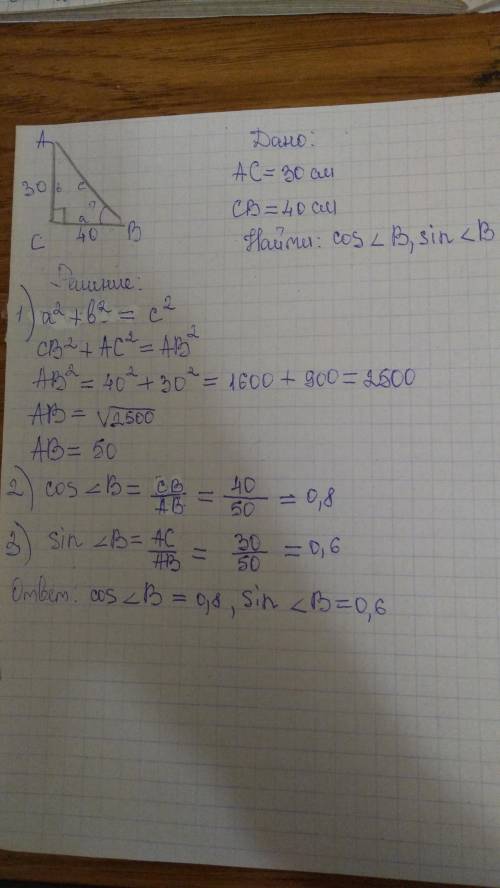 A
30 в c
a ?
C 40 B
Дано:
AC = 30 см
CB = 40 см
Найти: cos∠B, sin∠B
Решение:
1) a² + b² = c²
CB² + AC² = AB²
AB² = 40² + 30² = 1600 + 900 = 2500
AB = √2500
AB = 50
2) cos∠B = CB/AB = 40/50 = 0,8
3) sin∠B = AC/AB = 30/50 = 0,6
Ответ: cos∠B = 0,8, sin∠B = 0,6